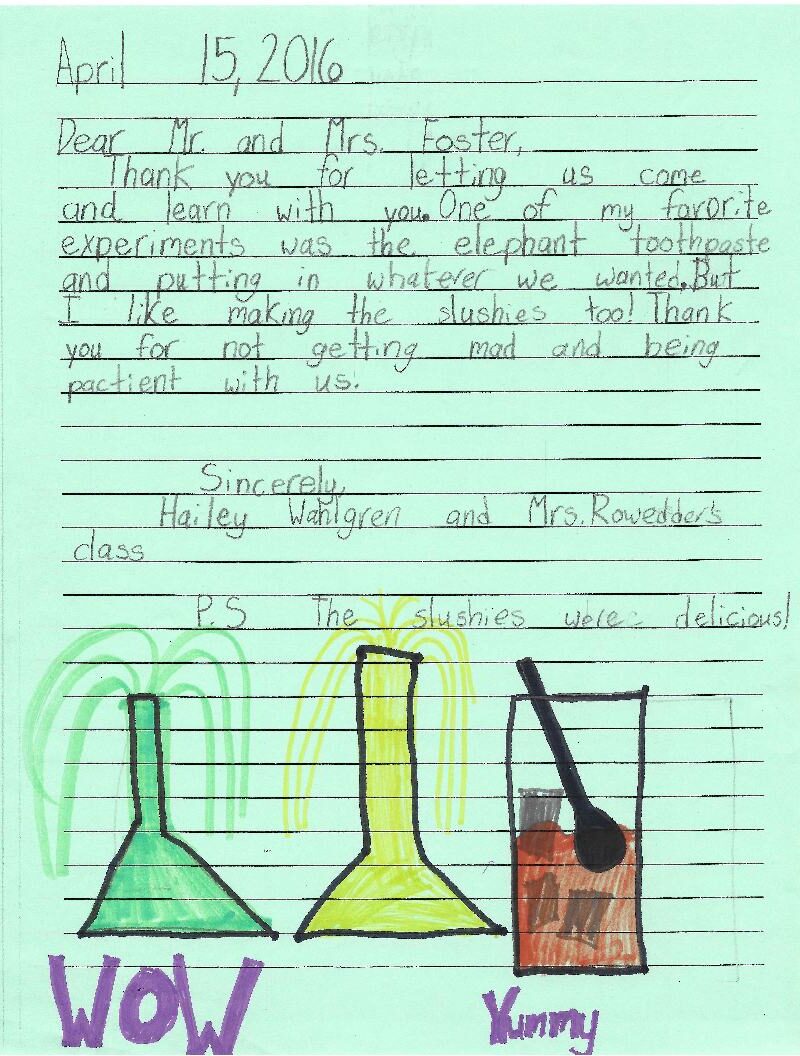 April 15, 2016
Dear Mr. and Mrs. Foster,
Thank you for letting us come
and learn with you. One of my favorite
experiments was the elephant toothpaste
and putting in whatever we wanted. But
I like making the slushies too! Thank
you for not getting mad and being
pactient with us.
Sincerely,
Hailey Wahlgren and Mrs. Rowedder's
class
P.S The slushies were delicious!
WOW
Yummy